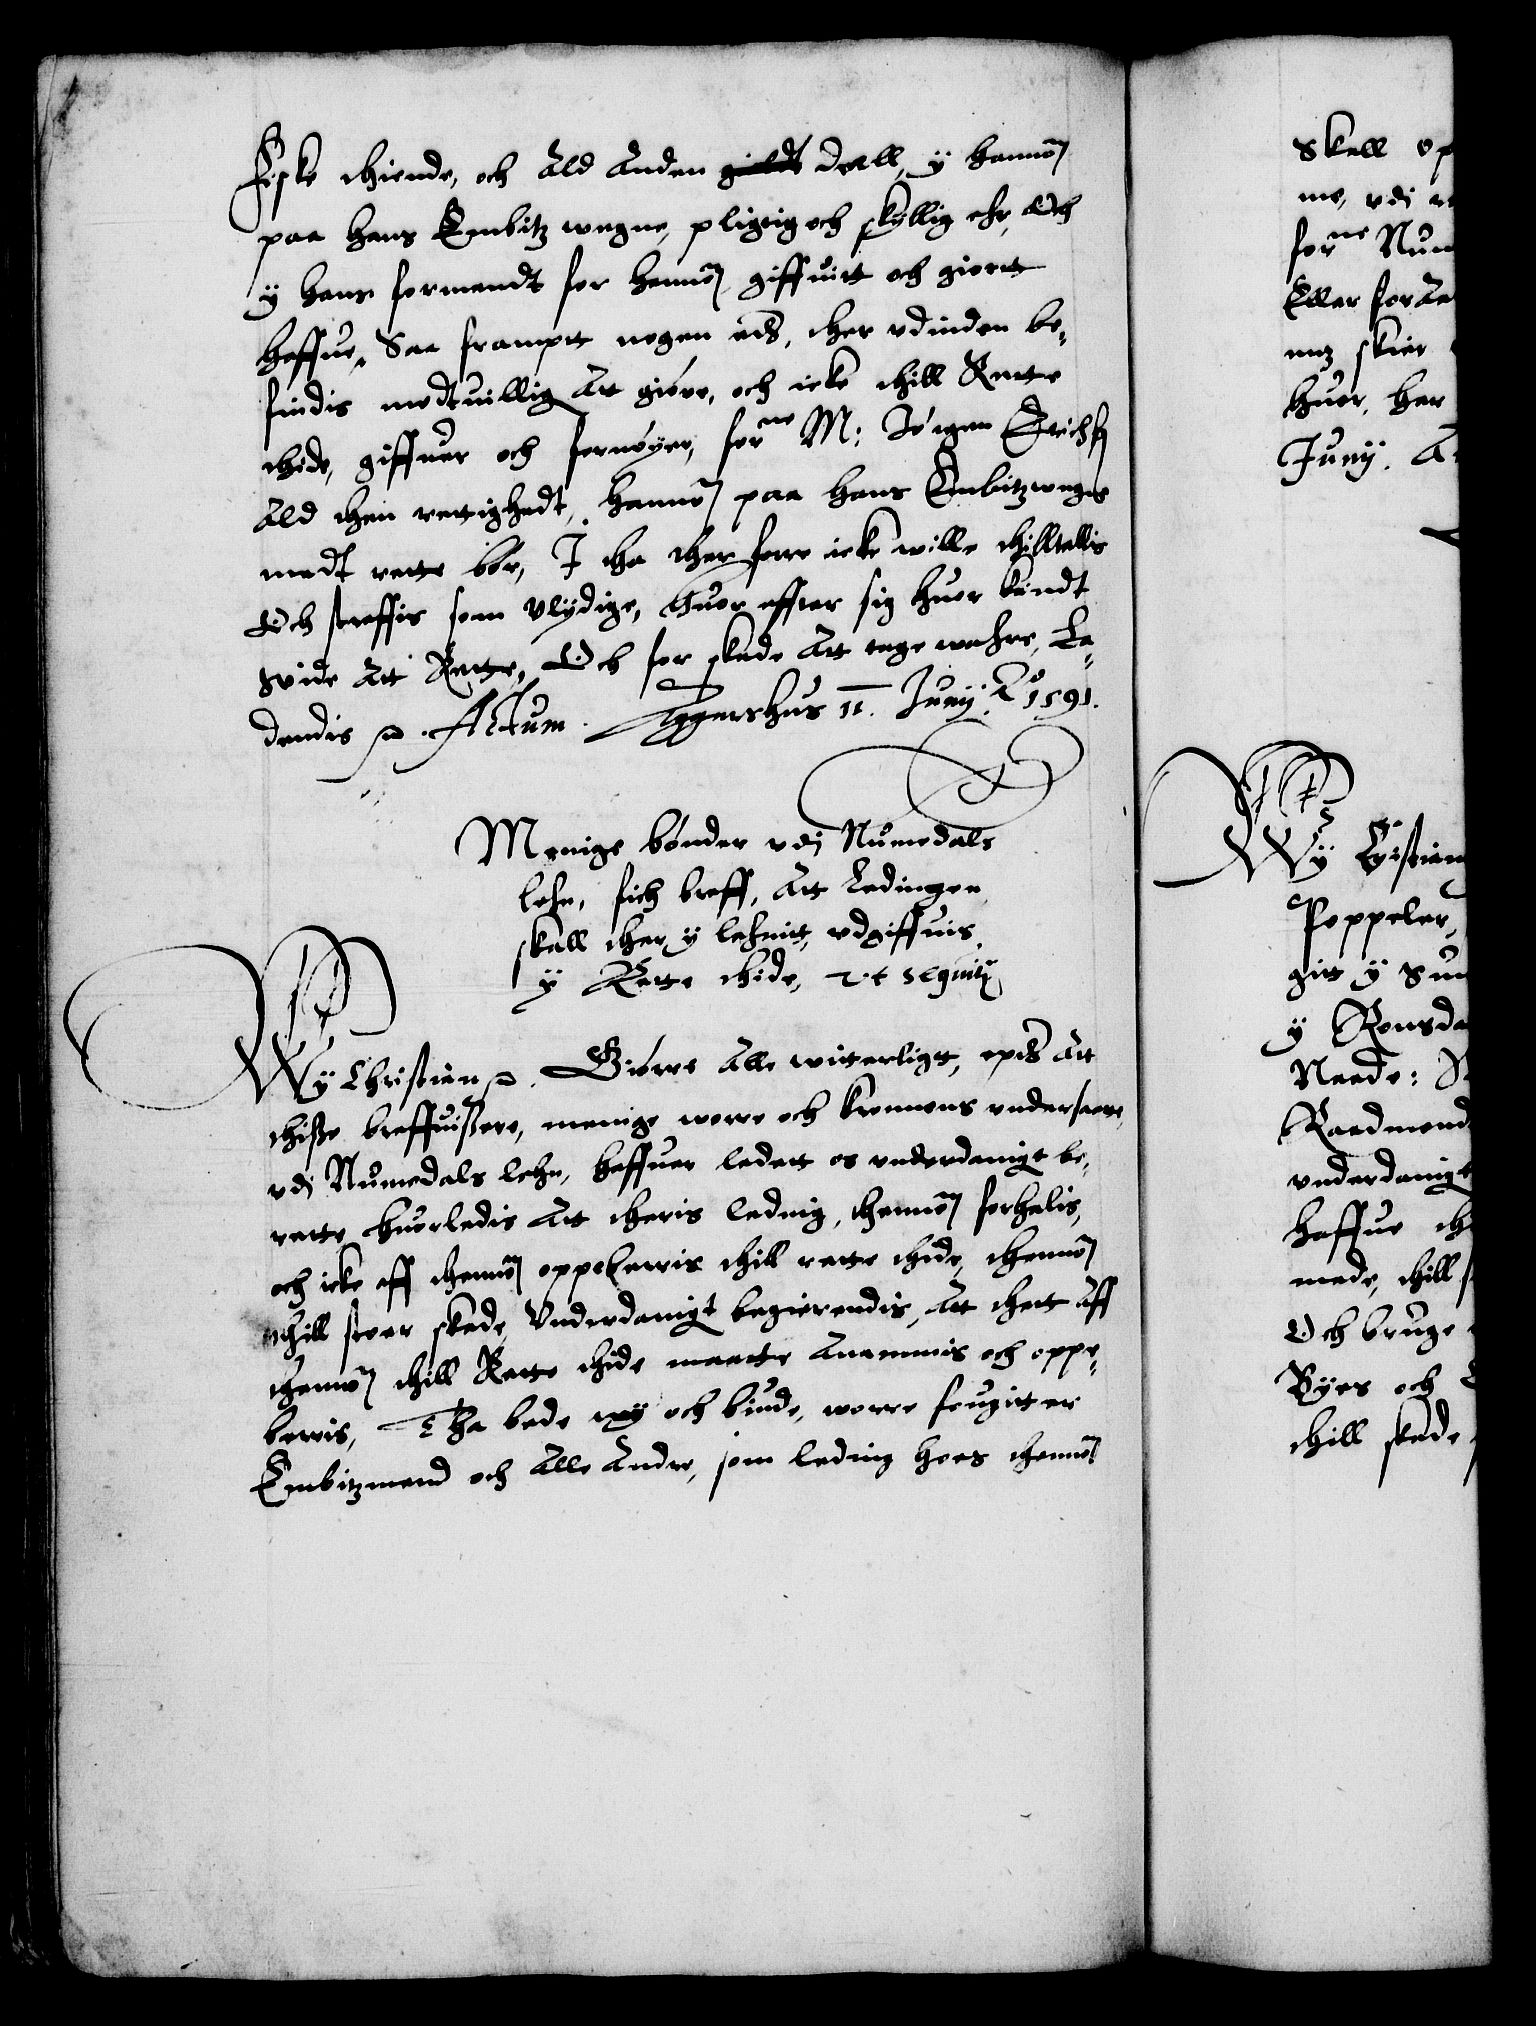 Fiske thiende, och Ald Anden deell, y hannom
paa hans Embitz wegne, pligtig och skyllig ehr, Och
y hans formendt for hannom giffuitt och giortt
haffue, Saa frampt nogen aff ether vdinden be-
findis modtuillig Att giøre, och icke thill Rette
thide, giffuer och fornøyer, for:ne M: Jørgen Erichsen
Ald then rettighedt, hannom paa hans Embitzwegne
medt rette bør, I tha ther forre icke wille thilltallis
Och straffis som Vlydige, Huor effter sig huer kandt
wide Att Rette, Och for skade Att tage wahre, La-
dendis etc. Actum Aggershus 11. Junij A:o 1591.
Menige bønder vdj Numedals
lehn, fich breff, Att Ledingen
skall ther y lehnitt, vdgiffuis,
y Rette thide, vt sequitur
Wy Christian etc. Giørre Alle witterligtt, epther Att
thisse breffuissere, menige worre och kronnens vndersaatte,
vdj Numedals lehn, haffuer ladett os vnderdanigt be-
rette, huorledis Att theris leding, thennom forhalis,
och icke aff thennom oppebærris thill rette thide, thennom
thill stoer skade, Vnderdanigt begierendis, Att thett Aff
thennom thill Rette thide maatte Anammis och oppe-
berris, Tha bede wy och biude, worre fougitter
Embitzmend och Alle Andre, som leding hoes thennom
Skall
me, vdj
for:ne Num
Eller
mz skier
huer, har
Junij. A
Wy Christian
Poppeler,
gitt y Sun
y Romsda
Naade:
Raadmend
vnderdanigt
haffue
made, thill
Och bruge
Byes och
thill skade